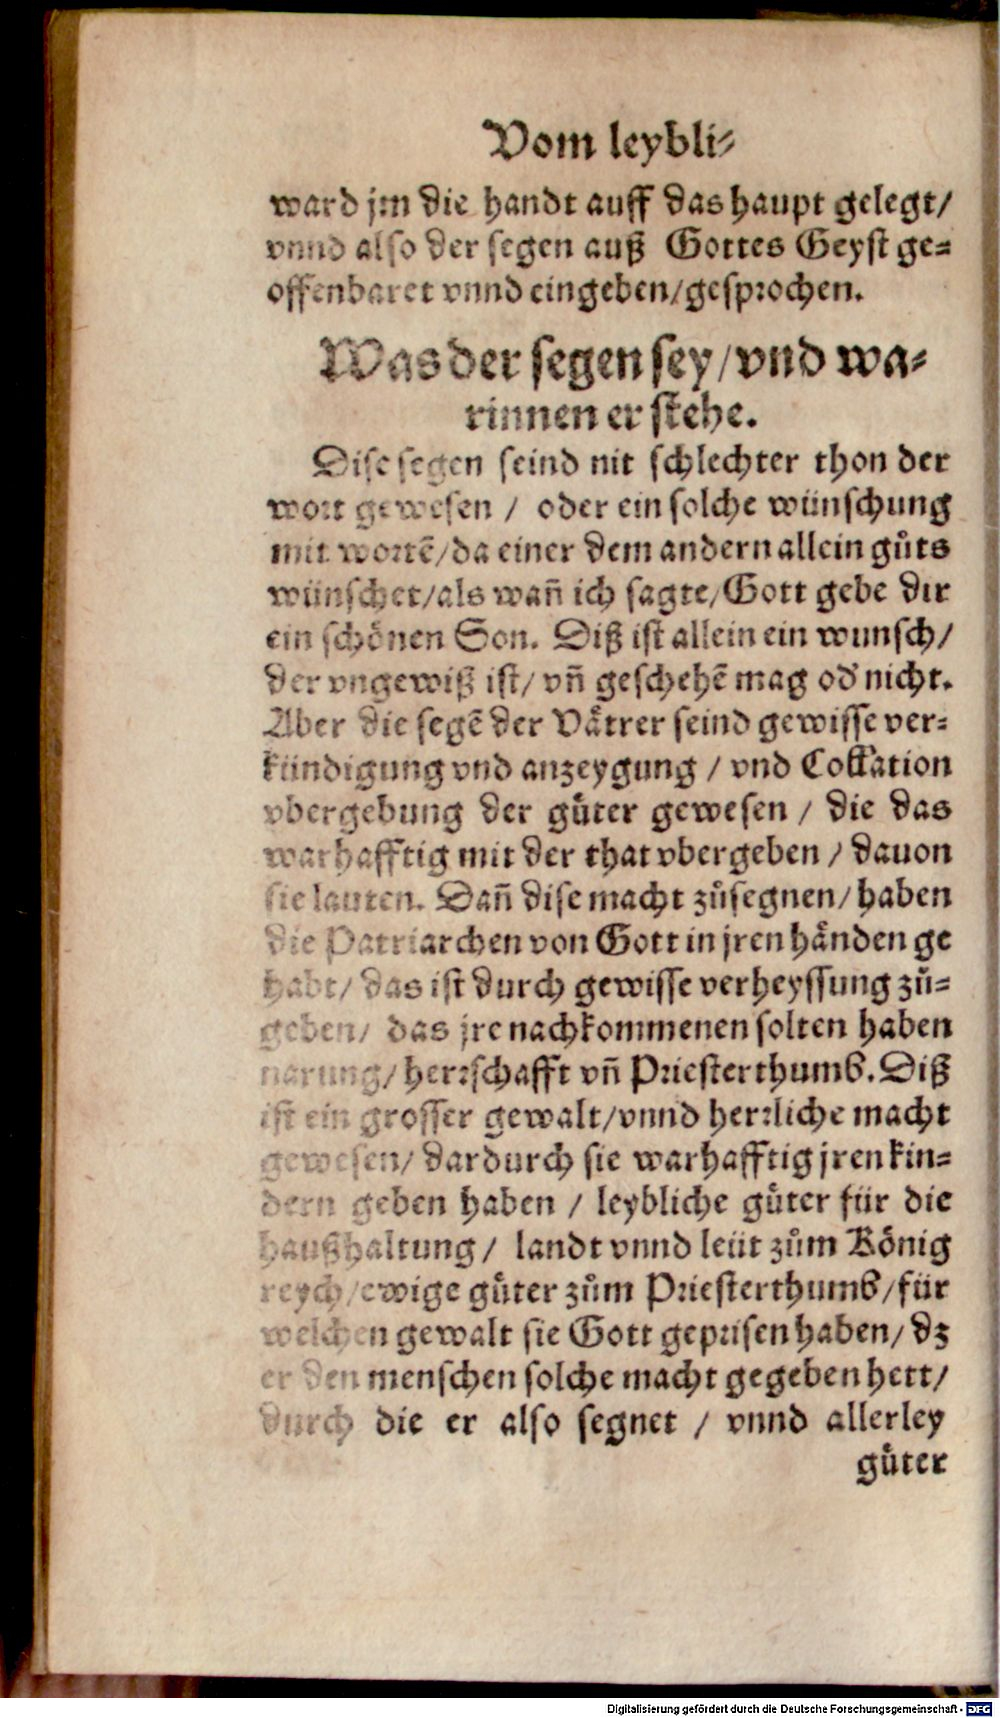 Vom leybli⸗
ward jm die handt auff das haupt gelegt/
vnnd also der segen auß Gottes Geyst ge⸗
offenbaret vnnd eingeben/gesprochen.
Was der segen sey/vnd wa⸗
rinnen er stehe.
Dise segen seind nit schlechter thon der
wort gewesen / oder ein solche wünschung
mit wortẽ/da einer dem andern allein gůts
wünschet/als wañ ich sagte/Gott gebe dir
ein schönen Son. Diß ist allein ein wunsch/
der vngewiß ist/ vñ geschehẽ mag od' nicht.
Aber die segẽ der Vätter seind gewisse ver⸗
kündigung vnd anzeygung / vnd Collation
vbergebung der güter gewesen / die das
warhafftig mit der that vbergeben / dauon
sie lauten. Dañ dise macht zůsegnen/ haben
die Patriarchen von Gott in jren händen ge
habt/ das ist durch gewisse verheyssung zů⸗
geben/ das jre nachkommenen solten haben
narung/ herrschafft vñ Priesterthumb. Diß
ist ein grosser gewalt/vnnd herrliche macht
gewesen/ dardurch sie warhafftig jren kin⸗
dern geben haben / leybliche güter für die
haußhaltung/ landt vnnd leüt zům König
reych/ewige güter zům Priesterthumb/für
welchen gewalt sie Gott geprisen haben/ dz
er den menschen solche macht gegeben hett/
durch die er also segnet / vnnd allerley
güter
Digitalisierung gefördert durch die Deutsche Forschungsgemeinschaft - DFG